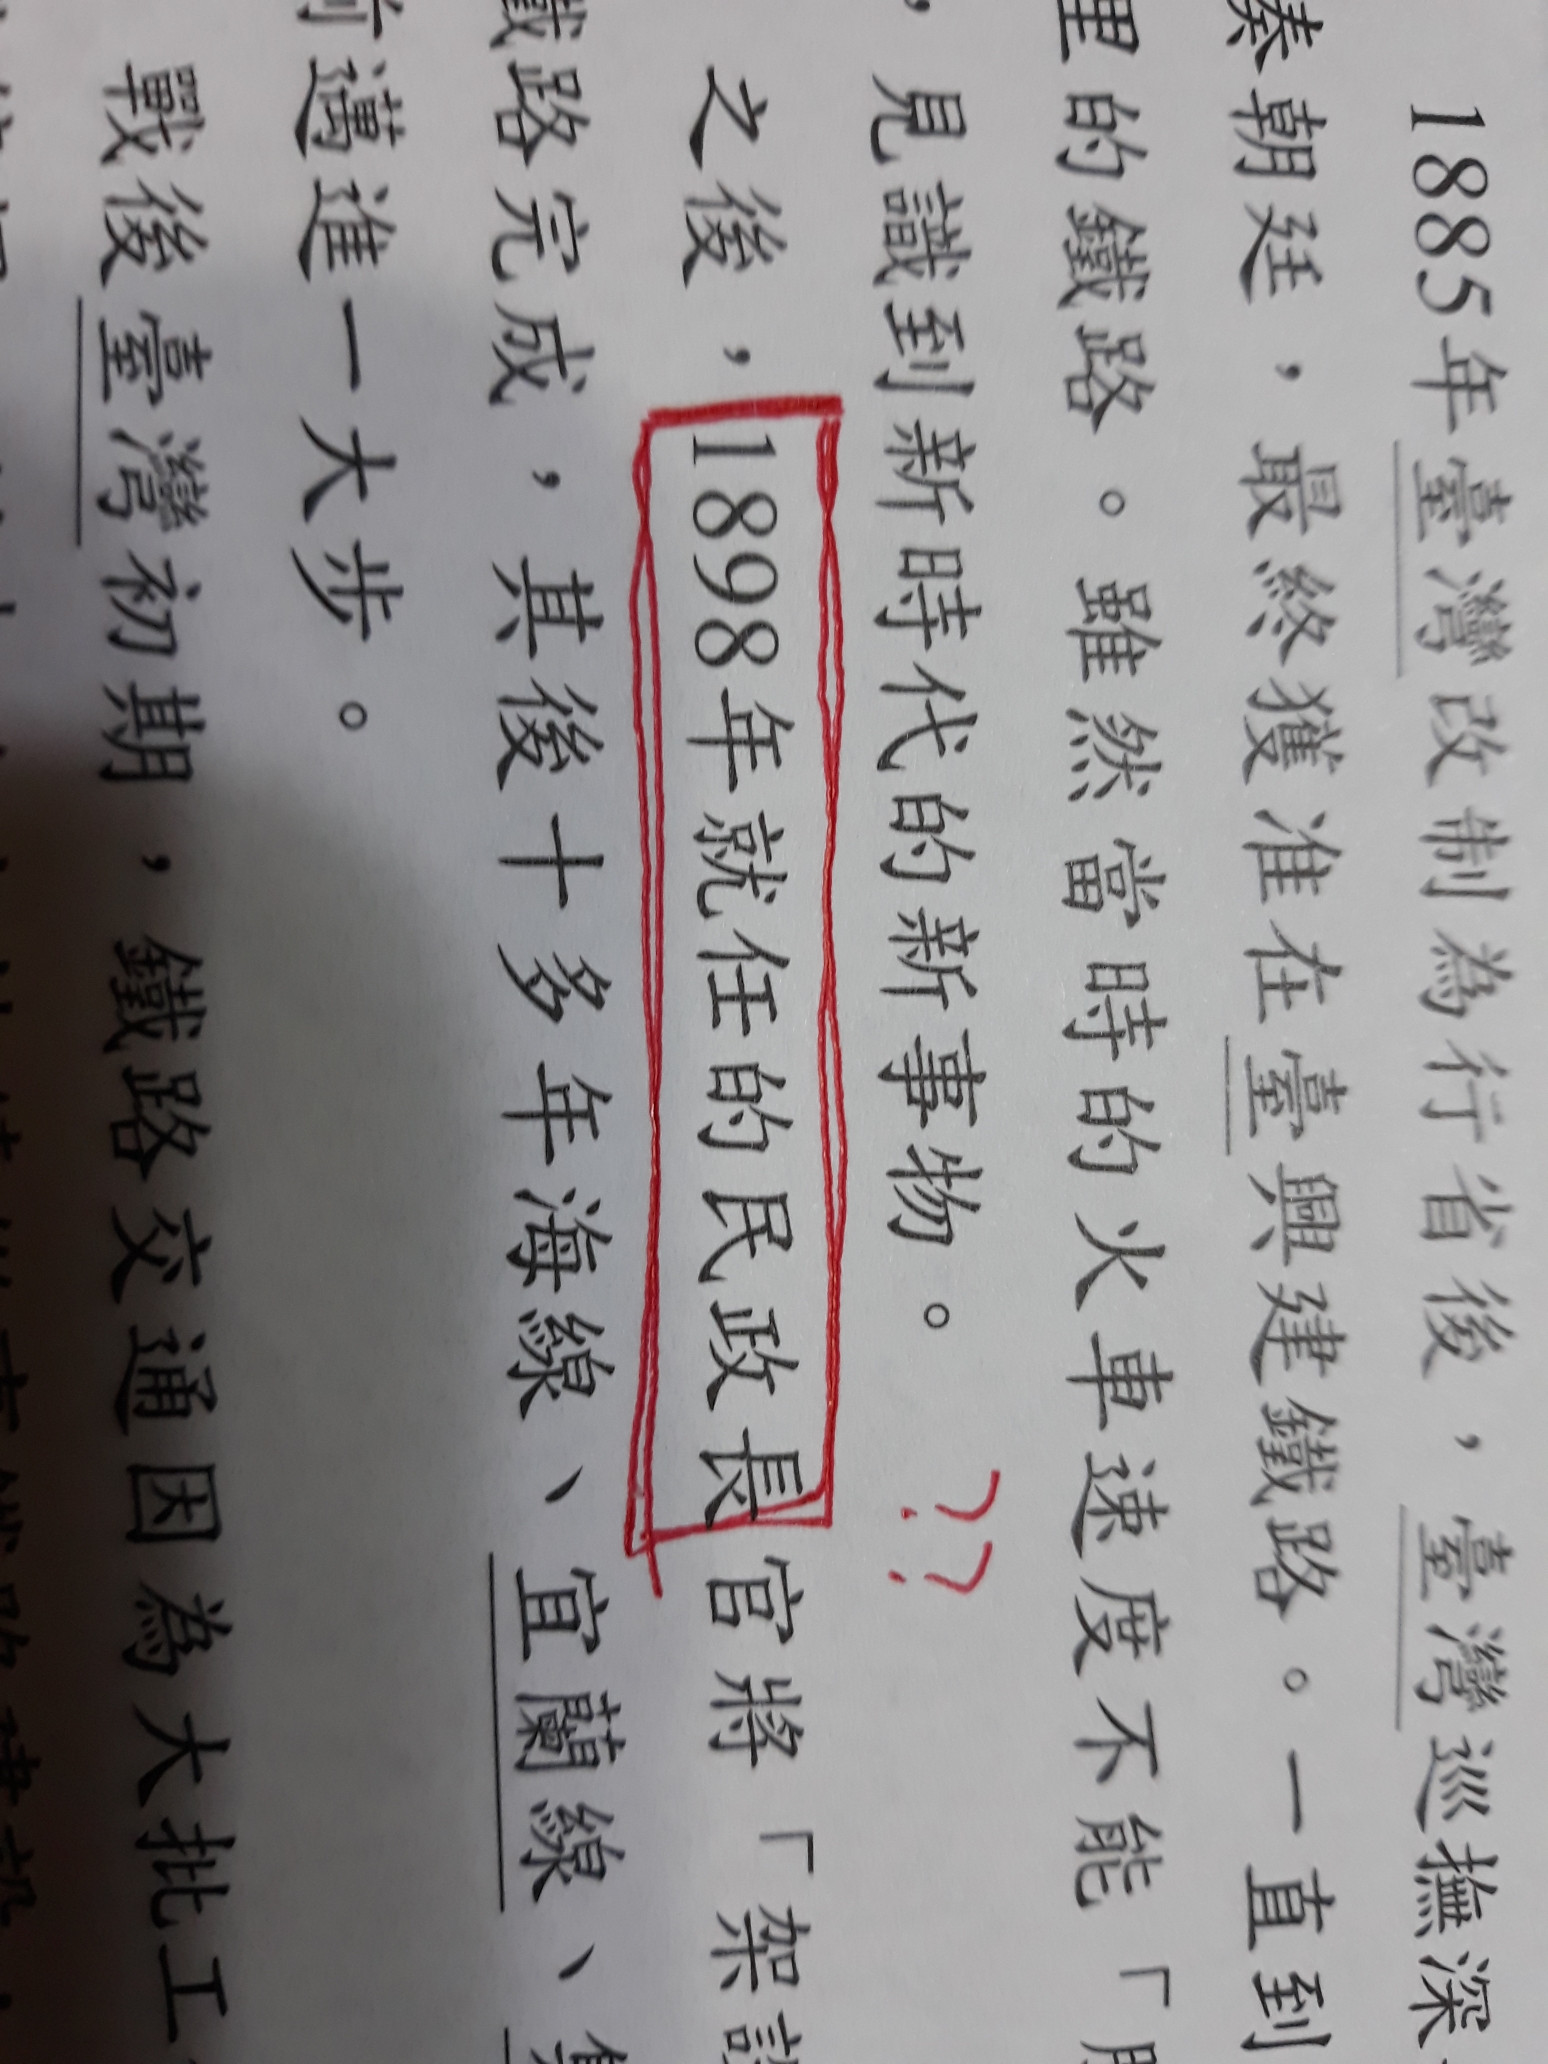 1885年臺灣改制為行省後，臺灣巡撫深
奏朝廷，最終獲准在臺興建鐵路。一直到
里的鐵路。雖然當時的火車速度不能「
，見識到新時代的新事物。
??
之後，1898年就任的民政長官將「架設
鐵路完成，其後十多年海線、宜蘭線、
前邁進一大步。
戰後臺灣初期，鐵路交通因為大批工